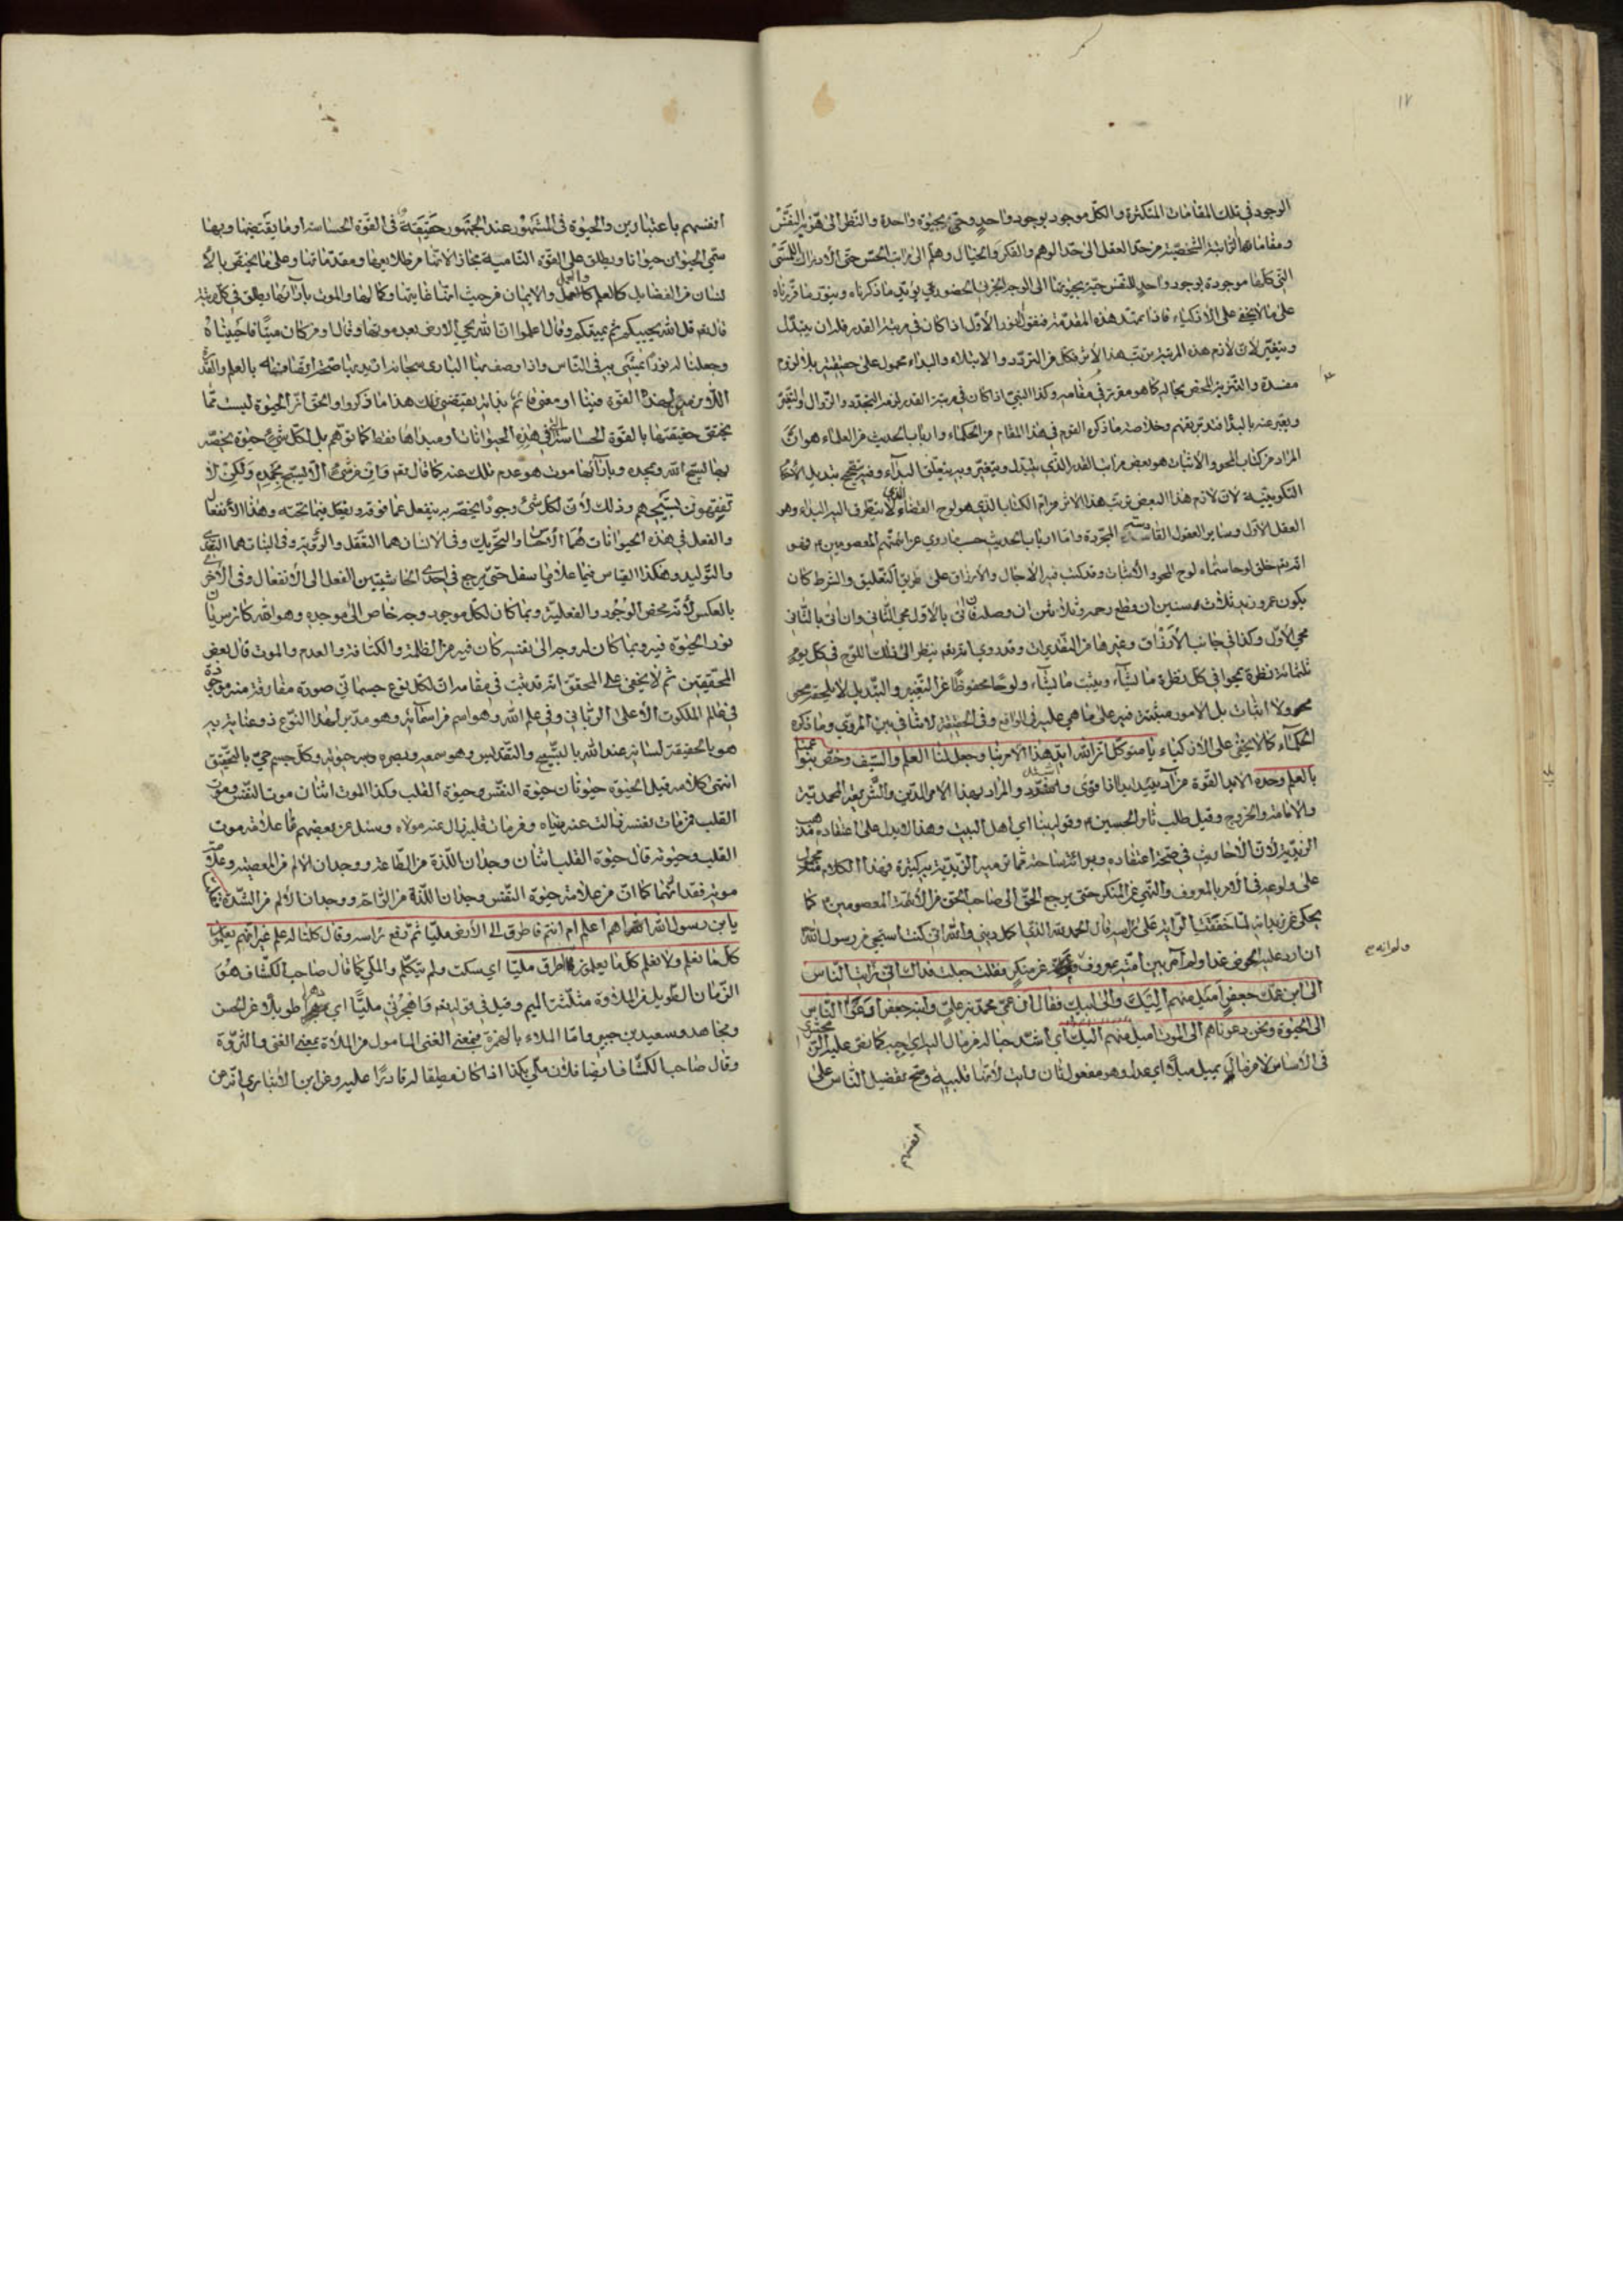 ١٧
الوجود في تلك المقامات المتكثرة والكل موجود بوجود واحد وحي بحيوة واحدة والنظر الى هوية النفس
ومقاماتها الشخصية من حد العقل الى حد الوهم والفكر والخيال وهلم الى مراتب الحس حتى الادراك اللمسي
التي كلها موجودة بوجود واحد للنفس حية بحيوتها الى الوجه الجزئي الحضوري يؤيد ما ذكرناه وينور ما قررناه
على ما لا يخفى على الاذكياء فاذا تمهد هذه المقدمة فنقول النور الاول اذا كان في مرتبة القدر فله ان يتبدل
ويتغير لان لازم هذه المرتبة ترتب هذا الاثر فكل من التردد والابتلاء والبداء محمول على حقيقته بلا لزوم
مفسدة والتنزيه المحض بحاله كما هو مقرر في مقامه وكذا الشيء اذا كان في مرتبة القدر لزمه التجدد والزوال والتغير
ويعبر عنه بالبداء وخلاصة ما ذكره القوم في هذا المقام من الحكماء وارباب الحديث من العلماء هو ان
المراد من كتاب المحو والاثبات هو بعض مراتب القدر الذي يتبدل ويتغير وبه يتعلق البداء وفيه يتحقق تبديل الاحكام
التكوينية لان لازم هذا البعض ترتب هذا الاثر من ام الكتاب الذي هو لوح القضاء الذي لا يتطرق اليه البداء وهو
العقل الاول وساير العقول القادسة المجردة واما ارباب الحديث حسبما روي عن ائمتهم المعصومين فهو
انه تعالى خلق لوحا سماه لوح المحو والاثبات وقد كتب فيه الاجال والارزاق على طريق التعليق والشرط كان
يكون عمر زيد ثلاث سنين ان قطع رحمه وثلاثين ان وصله فان اتى بالاول محي الثاني وان اتى بالثاني
محي الاول وكذا في جانب الارزاق وغيرها من التقديرات وقد روي انه تعالى ينظر الى ذلك اللوح في كل يوم
ثلثمائة نظرة يمحو في كل نظرة ما يشاء ويثبت ما يشاء ولوحا محفوظا عن التغيير والتبديل لا يلحقه محو
ولا اثبات بل الامور مثبتة فيه على ما هي عليه في الواقع وفي الحقيقة لا تنافي بين المروي وما ذكره
الحكماء كما لا يخفى على الاذكياء يا متوكل ان الله ايد هذا الامر بنا وجعل لنا العلم والسيف وخص بنو عمنا
بالعلم وحده الايد القوة من آد يئيد ايدا اذا قوي والمراد بهذا الامر الدين والشريعة المحمدية
والامامة والخروج وقيل طلب ثار الحسين وقوله بنا اي اهل البيت وهذا لا يدل على اعتقاده مذهب
الزيدية لان الاحاديث في صحة اعتقاده وبرائة ساحته مما ترميه الزيدية به كثيرة فهذا الكلام منه محمول
على ولوعه في الامر بالمعروف والنهي عن المنكر حتى يرجع الحق الى صاحب الحق من الائمة المعصومين كما
يحكى عن زيد انه لما خفقت الراية على راسه قال الحمد لله الذي اكمل ديني والله اني كنت استحيي من رسول الله
ان ارد عليه الحوض غدا ولم آمر بين امته بمعروف عن منكر فقلت جعلت فداك اني رايت الناس
الى ابن عمك جعفر اميل منهم اليك والى ابيك فقال ان عمي محمد بن علي وابنه جعفر دعوا الناس
الى الحيوة ونحن دعوناهم الى الموت اميل منهم اليك اي اشد حبا له من مال اليه اي احبه كما نص عليه الزمخشري
في الاساس لا من مال يميل ميلا اي عدل وهو مفعول ثان وابت لانها قلبية وصح تفضيل الناس على
انفسهم
انفسهم باعتبارين والحيوة في المشهور عند الجمهور حقيقة في القوة الحساسة او ما يقتضيها وبها
سمي الحيوان حيوانا ويطلق على القوة النامية مجازا لانها من طلايعها ومقدماتها وعلى ما يختص بالا
نسان من الفضايل كالعلم والعقل والايمان من حيث انها غايتها وكمالها والموت بازائها يطلق في كل مرتبة
قال تعالى قل الله يحييكم ثم يميتكم وقال اعلموا ان الله يحي الارض بعد موتها وقال او من كان ميتا فاحييناه
وجعلنا له نورا يمشي به في الناس واذا وصف بها الباري سبحانه اريد بها صحة اتصافه بالعلم والقدرة
اللازمة لهذه القوة فينا او معنى قائم بذاته يقتضي ذلك هذا ما ذكروا والحق ان الحيوة ليست مما
يختص حقيقتها بالقوة الحساسة التي في هذه الحيوانات او مبدأها فقط كما توهم بل لكل شيء حيوة تخصه
بها يسبح الله ويمجده وبازائها موت هو عدم ذلك عنه كما قال تعالى وان من شيء الا يسبح بحمده ولكن لا
تفقهون تسبيحهم وذلك لان لكل شيء وجودا يخصه به ينفعل عما فوقه ويفعل فيما تحته وهذا الانفعال
والفعل في هذه الحيوانات هما الاحساس والتحريك وفي الانسان هما التعقل والروية وفي النبات هما التغذي
والتوليد وهكذا القياس فيما علا وما سفل حتى يرجع في احدى الحاشيتين الفعل الى الانفعال وفي الاخرى
بالعكس لانه محض الوجود والفعلية وبما كان لكل موجود وجه خاص الى موجده وهو الله كان سريان
نور الحيوة فيه وبما كان له وجه الى نفسه كان فيه من الظلمة والكثافة والعدم والموت قال بعض
المحققين ثم لا يخفى على المحقق انه قد ثبت في مقامه ان لكل نوع جسماني صورة مفارقة منه موجودة
في عالم الملكوت الاعلى الرباني وفي علم الله وهو اسم من اسمائه وهو مدبر لهذا النوع ذو عناية به
هو بالحقيقة لسانه عند الله بالتسبيح والتقديس وهو سمعه وبصره وبه حيوته وكل جسم حي بالتحقيق
انتهى كلامه قيل الحيوة حيوتان حيوة النفس وحيوة القلب وكذا الموت اثنان موت النفس وموت
القلب فمن مات بنفسه زالت عنه دنياه ومن مات قلبه زال عنه مولاه وسئل عن بعضهم ما علامة موت
القلب وحيوته قال حيوة القلب اثنان وجدان اللذة من الطاعة ووجدان الالم من المعصية وعلامة
موته فقدانهما كما ان من علامة حيوة النفس وجدان اللذة من الراحة ووجدان الالم من الشدة
يا ابن رسول الله اهم اعلم ام انتم فاطرق الى الارض مليا ثم رفع راسه وقال كلنا له علم غير انهم يعلمون
كل ما نعلم ولا نعلم كل ما يعلمون اطرق مليا اي سكت ولم يتكلم والملي كما قال صاحب الكشاف هو
الزمان الطويل من الملاوة مثلثة الميم وقيل في قوله تعالى واهجرني مليا اي دهرا طويلا عن الحسن
ومجاهد وسعيد بن جبير واما الملاء بالهمزة فبمعنى الغني المامول من الملاءة بمعنى الغنى والثروة
وقال صاحب الكشاف ايضا فلان ملي بكذا اذا كان مطيقا له قادرا عليه وعن ابن الانباري انه من